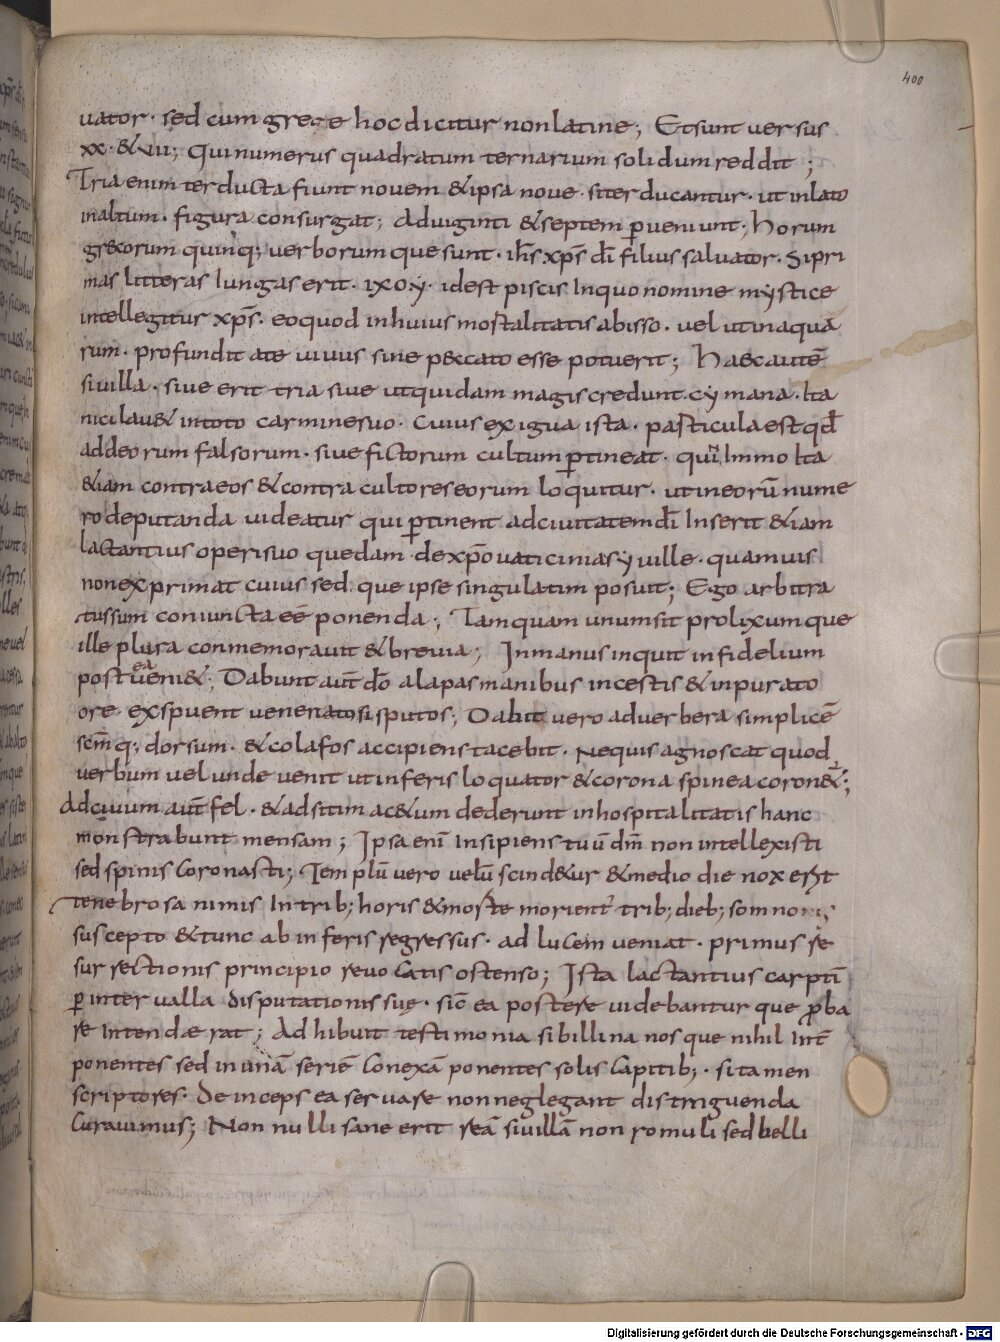 400
uator· sed cum grece hoc dicitur non latine; Et sunt uersus
xx·&uii; Qui numerus quadratum ternarium solidum reddit;
Tria enim ter ducta fiunt nouem & ipsa noue· si ter ducantur· ut in lato
in altum· figura consurgat; Ad uiginti & septem ꝑueniunt; horum
grecorum quinq; uerborum que sunt· ih̅s xp̅s di̅ filius saluator· Si pri
mas litteras lungas erit· ιχουγ· id est piscis In quo nomine mystice
intellegitur xp̅s· eo quod in huius mortalitatis abisso· uel ut in aqua
rum· profunditate uiuus sine peccato esse potuerit; haec aute̅
siuilla· siue erittria siue ut quidam magis credunt cymana· Ita
nicilau& in toto carmine suo· Cuius exigua ista· particula est qd̅
ad deorum falsorum· siue fictorum cultum ꝑtineat· Immo Ita
&iam contra eos & contra cultores eorum loquitur· ut in eoru̅ nume
ro deputanda uideatur qui ꝑtinent ad ciuitatem di̅ Inserit &iam
lactantius operi suo quedam de xp̅o uaticinia syuille· quamuis
non exprimat cuius sed· que ipse singulatim posuit; Ego arbitra
tus sum coniuncta ee̅ ponenda; Tamquam unum sit prolixum que
ille plura conmemorauit & breuia; In manus inquit infidelium
postea ueni&; Dabunt aut̅ do̅ alapas manibus incestis & inpurato
ore exspuent uenenatosi sputos; Dabit uero ad uerbera simplice̅
sc̅mq; dorsum· & colafos accipiens tacebit· Ne quis agnoscat quod
uerbum uel unde uenit ut inferis loquator & corona spinea coron&ͬ;
Ad ciuium aut̅ fel· & ad sitim ac&um dederunt inhospitalitatis hanc
monstrabunt mensam; Ipsa eni̅ Insipiens tuu̅ dm̅ non intellexisti
sed spinis Coronasti; Templu̅ uero uelu̅ scind&ur & medio die nox erit
tenebrosa nimis In trib; horis & morte morient᷑ trib; dieb; somno
suscepto & tunc ab inferis regressus· ad lucem ueniat· primus re
surrectionis principio reuocatis ostenso; Ista lactantius carpti̅
ꝑ interualla disputationis sue· sic̅ ea postere uidebantur que ꝓba
re Intendaerat; Adhibuit testimonia sibillina nos que nihil Int̅
ponentes sed in una̅ serie̅ Conexa̅ ponentes solis Capitib;· si tamen
scriptores· Deinceps ea seruare non neglegant distinguenda
Curauimus; Non nulli sane erit rea̅ siuilla̅ non romuli sed belli
Digitalisierung gefördert durch die Deutsche Forschungsgemeinschaft - DFG